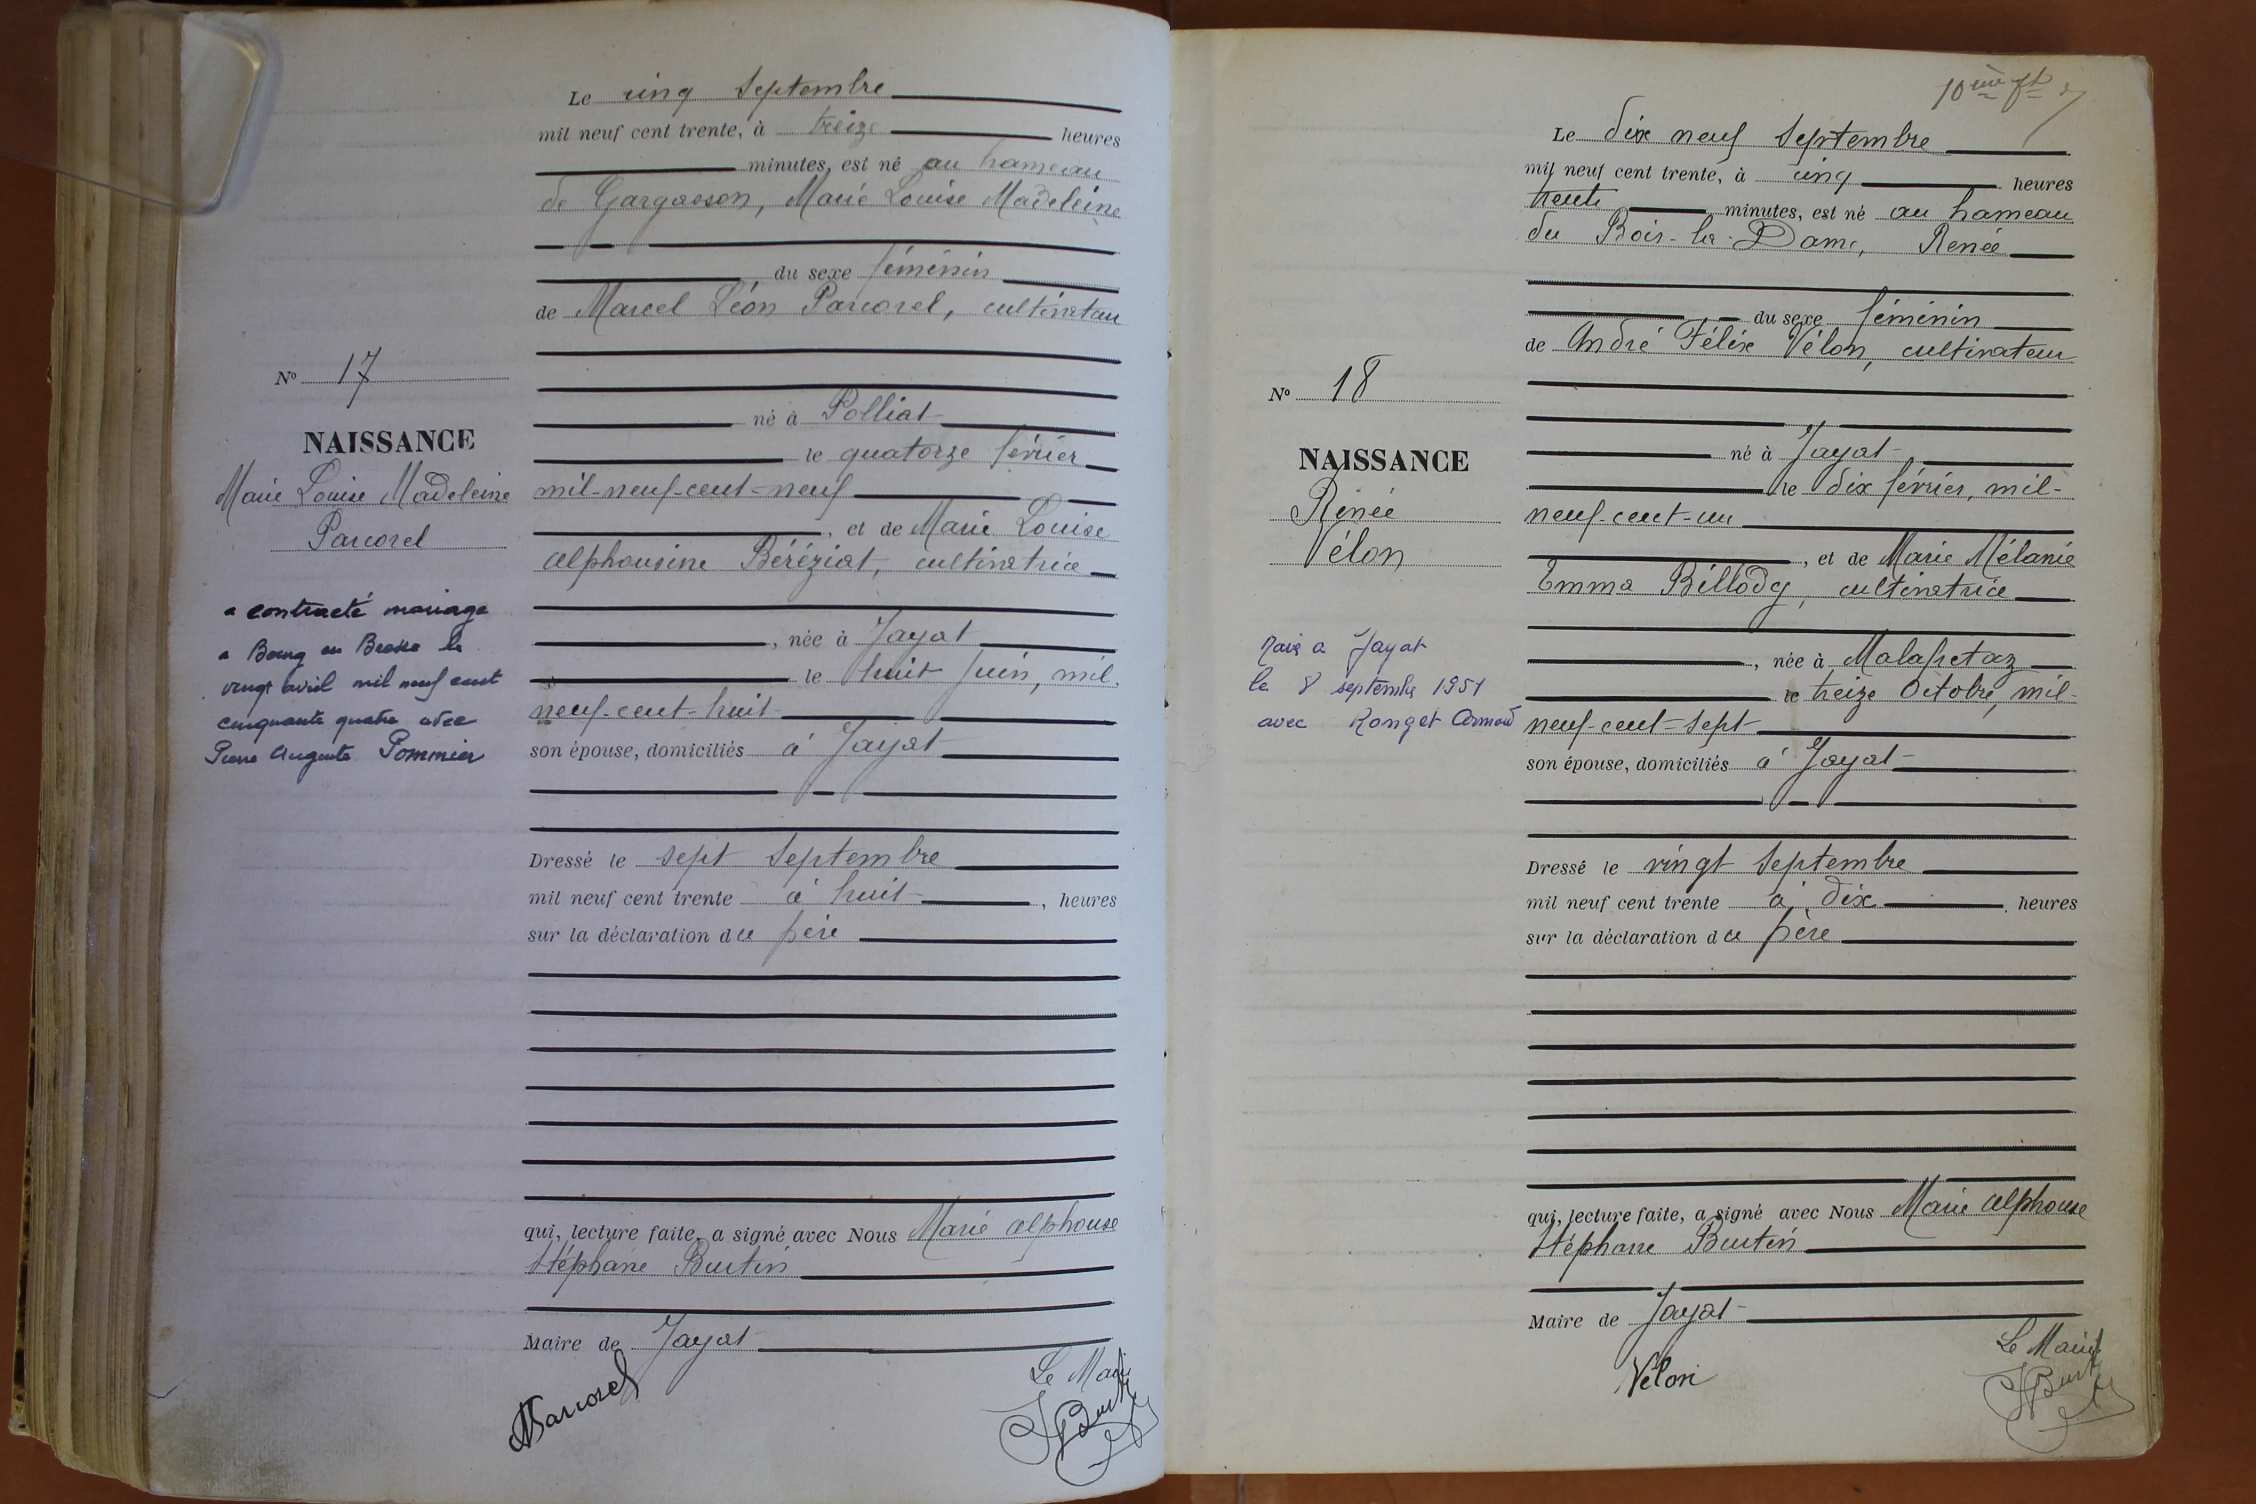 Le cinq Septembre
mil neuf cent trente, à treize heures
minutes, est né au hameau
de Gargasson, Marie Louise Madeleine
du sexe féminin
de Marcel Léon Parcorel, cultivateur
né à Polliat
le quatorze février
mil-neuf-cent-neuf
, et de Marie Louise
Alphonsine Béréziat, cultivatrice
, née à Jayat
le huit Juin, mil-
neuf-cent-huit
son épouse, domiciliés à Jayat
Dressé le sept Septembre
mil neuf cent trente à huit , heures
sur la déclaration du père
qui, lecture faite, a signé avec Nous Marie Alphonse
Stéphane Burtin
Maire de Jayat
Parcorel
Le Maire
Burtin
N° 17
NAISSANCE
Marie Louise Madeleine
Parcorel
a contracté mariage
a Bourg en Bresse le
vingt avril mil neuf cent
cinquante quatre avec
Pierre Auguste Pommier
10ème ft
Le dix neuf Septembre
mil neuf cent trente, à cinq heures
trente minutes, est né au hameau
du Bois-la-Dame, Renée
du sexe féminin
de André Félix Vélon, cultivateur
né à Jayat
le dix février, mil-
neuf-cent-un
, et de Marie Mélanie
Emma Billoday, cultivatrice
, née à Malafretaz
le treize Octobre, mil-
neuf-cent-sept
son épouse, domiciliés à Jayat
Dressé le vingt Septembre
mil neuf cent trente à dix heures
sur la déclaration du père
qui, lecture faite, a signé avec Nous Marie Alphonse
Stéphane Burtin
Maire de Jayat
Vélon
Le Maire
Burtin
N° 18
NAISSANCE
Renée
Vélon
Mariée a Jayat
le 8 septembre 1951
avec Ronget Armand